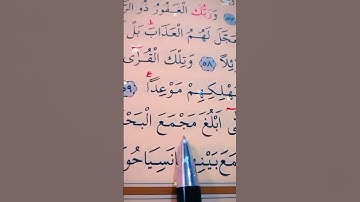 وَرَبُّكَ الْغَفُورُ ذُو الرَّ
عَجَّلَ لَهُمُ الْعَذَابَ بَلْ
ئِلًا ﴿٥٨﴾ وَتِلْكَ الْقُرٰٓى
لِمَهْلِكِهِمْ مَوْعِدًا ﴿٥٩
اَبْلُغَ مَجْمَعَ الْبَحْ
مَعَ بَيْنِهِ نَسِيَا حُو